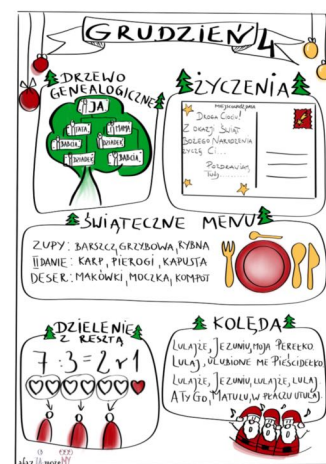 GRUDZIEŃ 4
DRZEWO
GENEALOGICZNE
JA
TATA
MAMA
BABCIA
DZIADEK
DZIADEK
BABCIA
ŻYCZENIA
MIEJSCOWOŚĆ, DATA
DROGA CIOCIU!
Z OKAZJI ŚWIĄT
BOŻEGO NARODZENIA
ŻYCZĘ CI...
POZDRAWIAM,
ŚWIĄTECZNE MENU
ZUPY: BARSZCZ, GRZYBOWA, RYBNA
II DANIE: KARP, PIEROGI, KAPUSTA
DESER: MAKÓWKI, MOCZKA, KOMPOT
DZIELENIE
Z RESZTĄ
7 : 3 = 2 r 1
KOLĘDA
LULAJŻE, JEZUNIU, MOJA PEREŁKO.
LULAJ, ULUBIONE ME PIEŚCIDEŁKO.
LULAJŻE, JEZUNIU, LULAJŻE, LULAJ
A TY GO, MATULU, W PŁACZU UTULAJ.